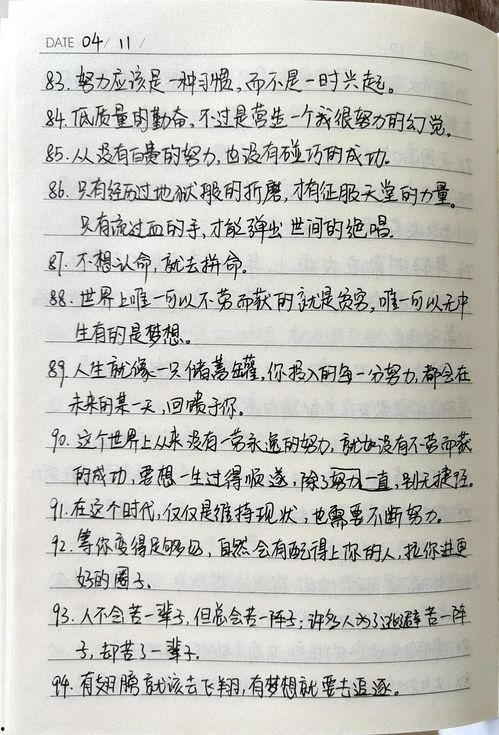 DATE 04/ 11/
83. 努力应该是一种习惯，而不是一时兴起。
84. 低质量的勤奋，不过是营生一个我很努力的幻觉。
85. 从没有白费的努力，也没有碰巧的成功。
86. 只有经历过地狱般的折磨，才有征服天堂的力量。
只有流过血的手，才能弹出世间的绝唱。
87. 不想认命，就去拼命。
88. 世界上唯一可以不劳而获的就是贫穷，唯一可以无中
生有的是梦想。
89. 人生就像一只储蓄罐，你投入的每一分努力，都会在
未来的某一天，回馈于你。
90. 这个世界上从来没有一劳永逸的努力，就如没有不劳而获
的成功，要想一生过得顺遂，除了努力一直，别无捷径。
91. 在这个时代，仅仅是维持现状，也需要不断努力。
92. 等你变得足够好，自然会有配得上你的人，拉你进更
好的圈子。
93. 人不会苦一辈子，但总会苦一阵子；许多人为了逃避苦一阵
子，却苦了一辈子。
94. 有翅膀就该去飞翔，有梦想就要去追逐。